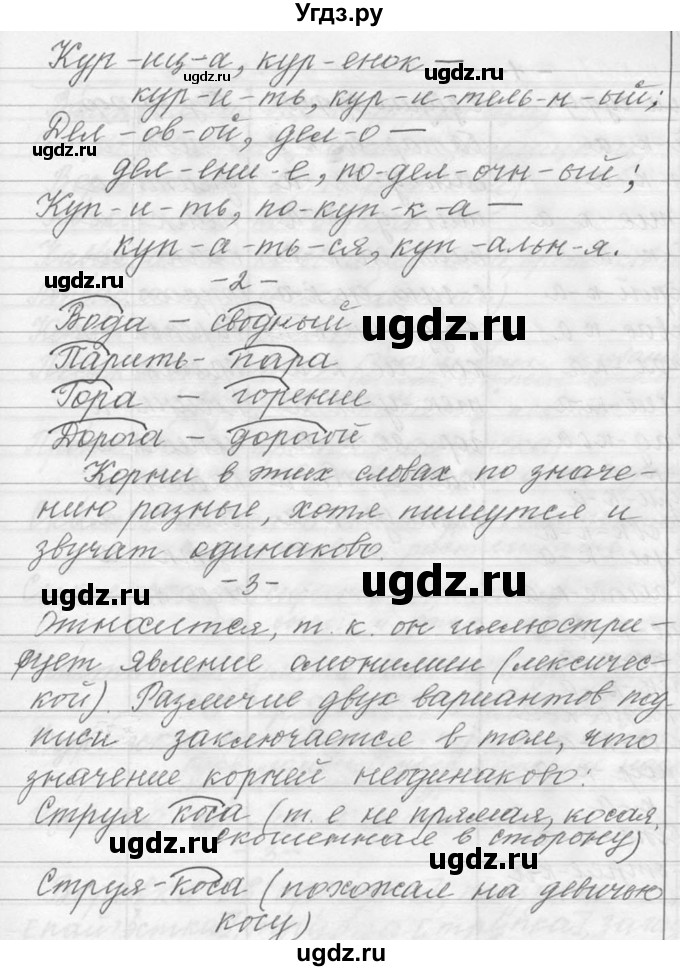 Угдз.ру
Кур-иц-а, кур-енок —
кур-и-ть, кур-и-тель-н-ый;
Дел-ов-ой, дел-о —
дел-ени-е, по-дел-очн-ый;
Куп-и-ть, по-куп-к-а —
куп-а-ть-ся, куп-альн-я.
-2-
Вода – сводный
Парить- пара
Гора – горение
Дорога – дорогой
Корни в этих словах по значе-
нию разные, хотя пишутся и
звучат одинаково.
-3-
Относится, т. к. он иллюстри-
рует явление омонимии (лексичес-
кой). Различие двух вариантов под-
писи заключается в том, что
значение корней неодинаково:
Струя коса (т. е не прямая, косая,
скошенная в сторону)
Струя-коса (похожая на девичью
косу)
ugdz.ru
ugdz.ru
ugdz.ru
ugdz.ru
ugdz.ru
ugdz.ru
ugdz.ru
ugdz.ru
ugdz.ru
ugdz.ru
ugdz.ru